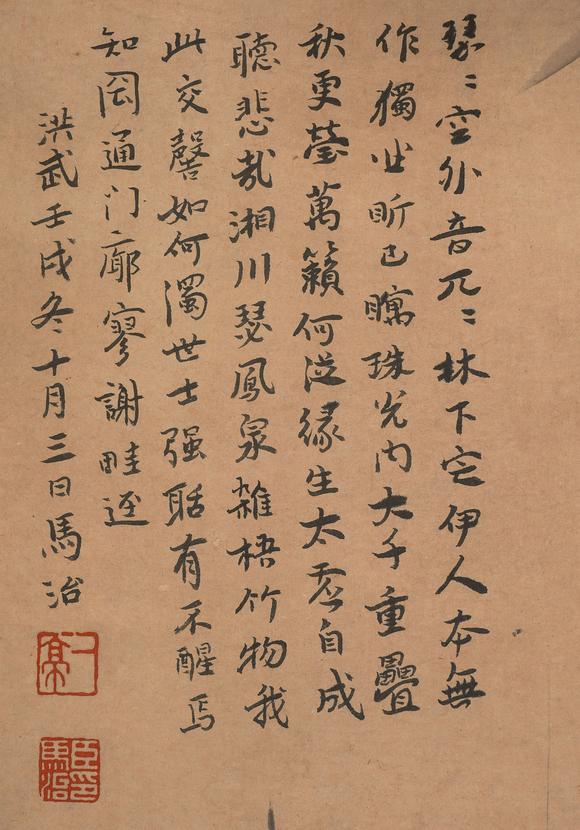 瑟〻空外音兀〻林下定伊人本無
作獨坐昕已珠光内大千重疊
秋更瑩萬籟何從緣生太虛自成
聽悲哉湘川瑟鳳泉雜梧竹物我
此交罄如何濁世士强聒有不醒焉
知罔通门廓寥謝畦逕
洪武壬戌冬十月三日馬治